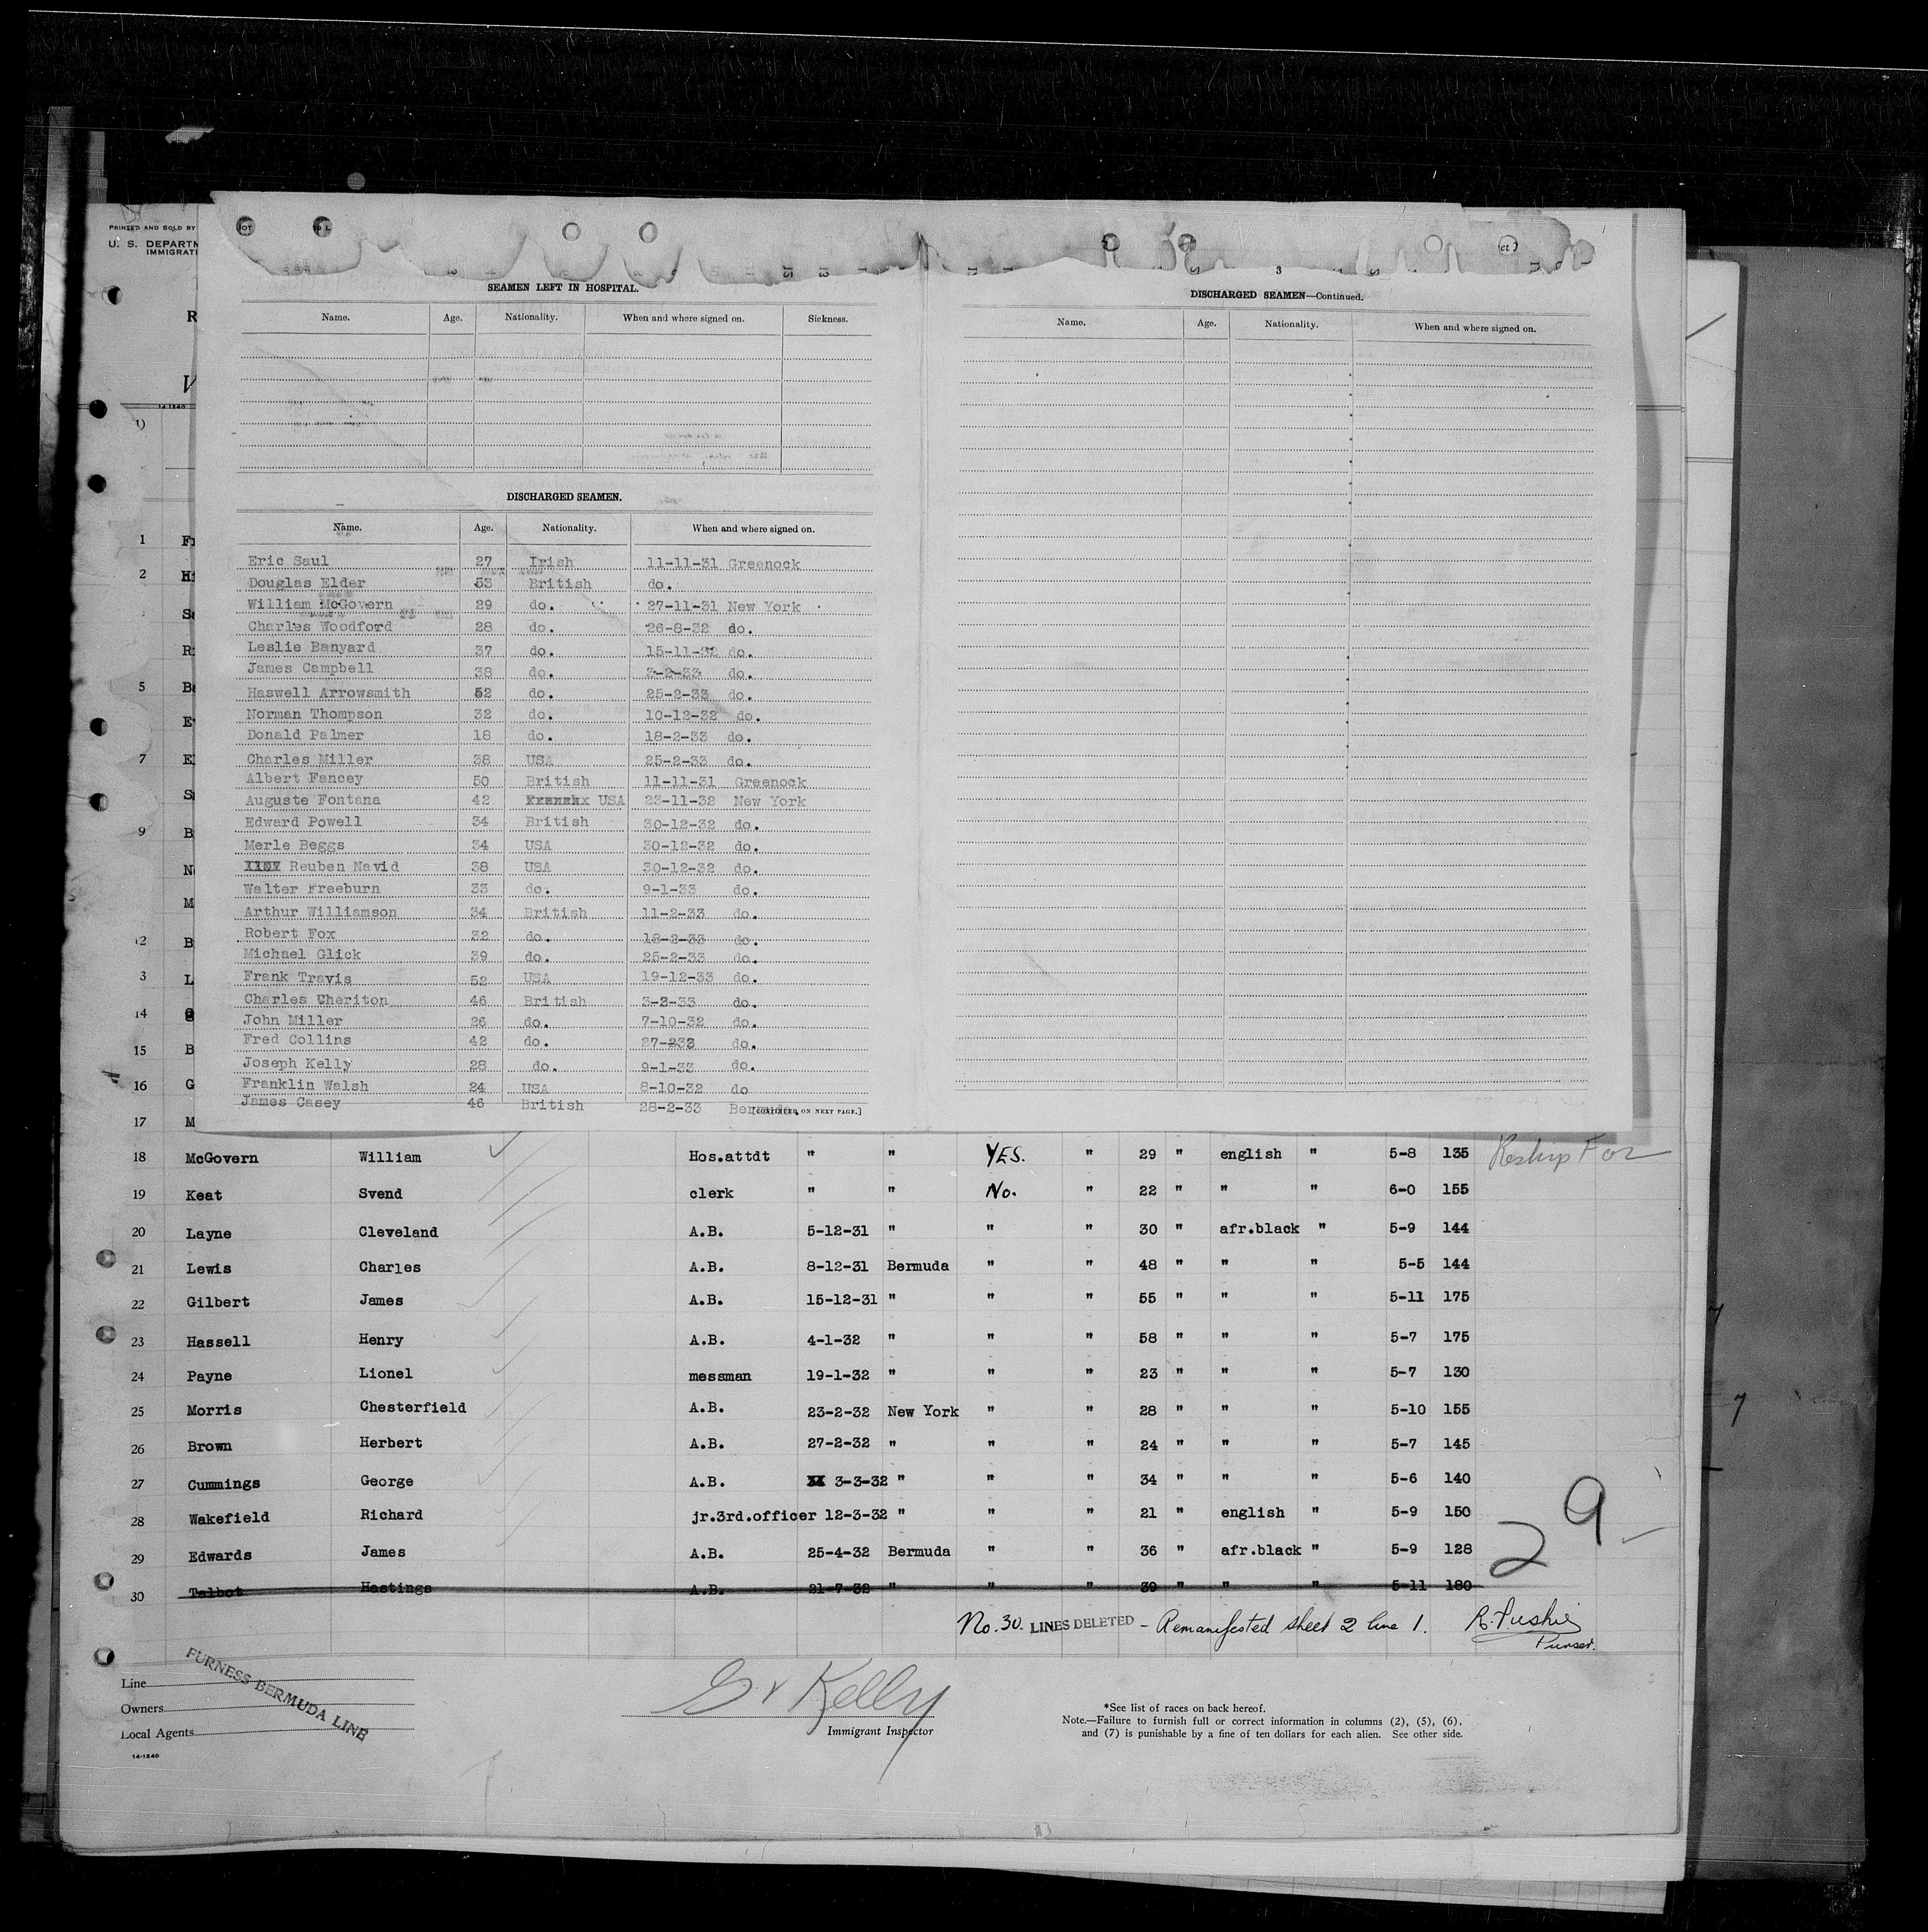 PRINTED AND SOLD BY
U. S. DEPARTM
IMMIGRATI
SEAMEN LEFT IN HOSPITAL.
Name. Age. Nationality. When and where signed on. Sickness.
DISCHARGED SEAMEN.
Name. Age. Nationality. When and where signed on.
Eric Saul 27 Irish 11-11-31 Greenock
Douglas Elder 53 British do.
William McGovern 29 do. 27-11-31 New York
Charles Woodford 28 do. 26-8-32 do.
Leslie Banyard 37 do. 15-11-32 do.
James Campbell 38 do. 3-2-33 do.
Haswell Arrowsmith 52 do. 25-2-33 do.
Norman Thompson 32 do. 10-12-32 do.
Donald Palmer 18 do. 18-2-33 do.
Charles Miller 38 USA 25-2-33 do.
Albert Fancey 50 British 11-11-31 Greenock
Auguste Fontana 42 USA 23-11-32 New York
Edward Powell 34 British 30-12-32 do.
Merle Beggs 34 USA 30-12-32 do.
Reuben Navid 38 USA 30-12-32 do.
Walter Freeburn 33 do. 9-1-33 do.
Arthur Williamson 34 British 11-2-33 do.
Robert Fox 32 do. 18-2-33 do.
Michael Glick 39 do. 25-2-33 do.
Frank Travis 52 USA 19-12-33 do.
Charles Cheriton 46 British 3-2-33 do.
John Miller 26 do. 7-10-32 do.
Fred Collins 42 do. 27-233 do.
Joseph Kelly 28 do. 9-1-33 do.
Franklin Walsh 24 USA 8-10-32 do
James Casey 46 British 28-2-33 Bermuda
[CONTINUED ON NEXT PAGE.]
DISCHARGED SEAMEN—Continued.
Name. Age. Nationality. When and where signed on.
18 McGovern William Hos.attdt " " YES. " 29 " english " 5-8 135 Reship For
19 Keat Svend clerk " " No. " 22 " " " 6-0 155
20 Layne Cleveland A.B. 5-12-31 " " " 30 " afr.black " 5-9 144
21 Lewis Charles A.B. 8-12-31 Bermuda " " 48 " " " 5-5 144
22 Gilbert James A.B. 15-12-31 " " " 55 " " " 5-11 175
23 Hassell Henry A.B. 4-1-32 " " " 58 " " " 5-7 175
24 Payne Lionel messman 19-1-32 " " " 23 " " " 5-7 130
25 Morris Chesterfield A.B. 23-2-32 New York " " 28 " " " 5-10 155
26 Brown Herbert A.B. 27-2-32 " " " 24 " " " 5-7 145
27 Cummings George A.B. 3-3-32 " " " 34 " " " 5-6 140
28 Wakefield Richard jr.3rd.officer 12-3-32 " " " 21 " english " 5-9 150
29 Edwards James A.B. 25-4-32 Bermuda " " 36 " afr.black " 5-9 128
30 Talbot Hastings A.B. 21-7-32 " " " 39 " " " 5-11 180
29
No. 30. LINES DELETED - Remanifested sheet 2 line 1.
Purser.
Line
Owners
Local Agents
FURNESS BERMUDA LINE
14-1240
Kelly
Immigrant Inspector
*See list of races on back hereof.
Note.—Failure to furnish full or correct information in columns (2), (5), (6),
and (7) is punishable by a fine of ten dollars for each alien. See other side.